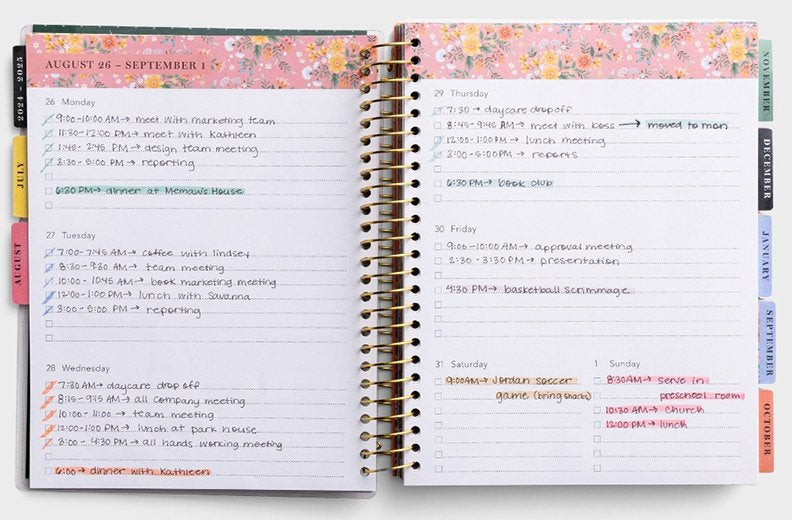 2024 - 2025
JULY
AUGUST
AUGUST 26 – SEPTEMBER 1
26 Monday
9:00-10:00 AM → meet with marketing team
11:30-12:00 PM → meet with Kathleen
1:45-2:45 PM → design team meeting
3:30-5:00 PM → reporting
6:30 PM → dinner at Memaw's House
27 Tuesday
7:00-7:45 AM → coffee with lindsey
8:30-9:30 AM → team meeting
10:00-10:45 AM → book marketing meeting
12:00-1:00 PM → lunch with Savanna
3:00-5:00 PM → reporting
28 Wednesday
7:30 AM → daycare drop off
8:15-9:15 AM → all company meeting
10:00-11:00 → team meeting
12:00-1:00 PM → lunch at park house
3:00-4:30 PM → all hands working meeting
6:00 → dinner with Kathleen
29 Thursday
7:30 → daycare drop off
8:45-9:45 AM → meet with boss → moved to mon
12:00-1:00 PM → lunch meeting
3:00-5:00 PM → reports
6:30 PM → book club
30 Friday
9:00-10:00 AM → approval meeting
2:30-3:30 PM → presentation
4:30 PM → basketball scrimmage
31 Saturday
9:00AM → Jordan soccer
game (bring snacks)
1 Sunday
8:30AM → serve in
preschool room
10:30 AM → church
12:00 PM → lunch
NOVEMBER
DECEMBER
JANUARY
SEPTEMBER
OCTOBER